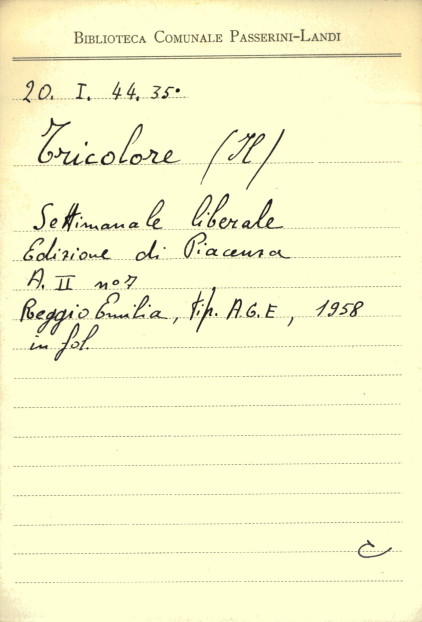 Biblioteca Comunale Passerini-Landi
20. I. 44. 35•
Tricolore (Il)
Settimanale liberale
Edizione di Piacenza
A. II n° 7
Reggio Emilia, tip. A.G.E, 1958
in fol.
C